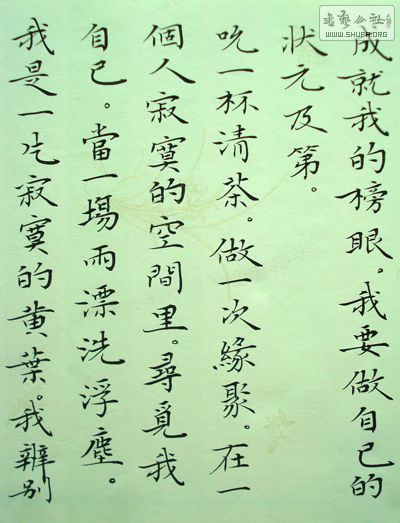 成就我的榜眼。我要做自己的
狀元及第。
吃一杯清茶。做一次緣聚。在一
個人寂寞的空間里。尋覓我
自己。當一場雨漂洗浮塵。
我是一片寂寞的黃葉。我辨别
書藝公社
WWW.SHUFA.ORG